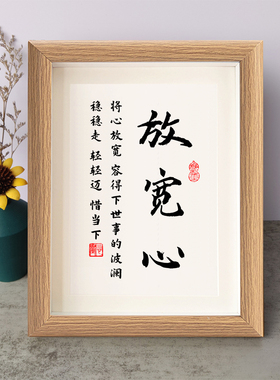 放宽心
将心放宽 容得下世事的波澜
稳稳走 轻轻迈 惜当下